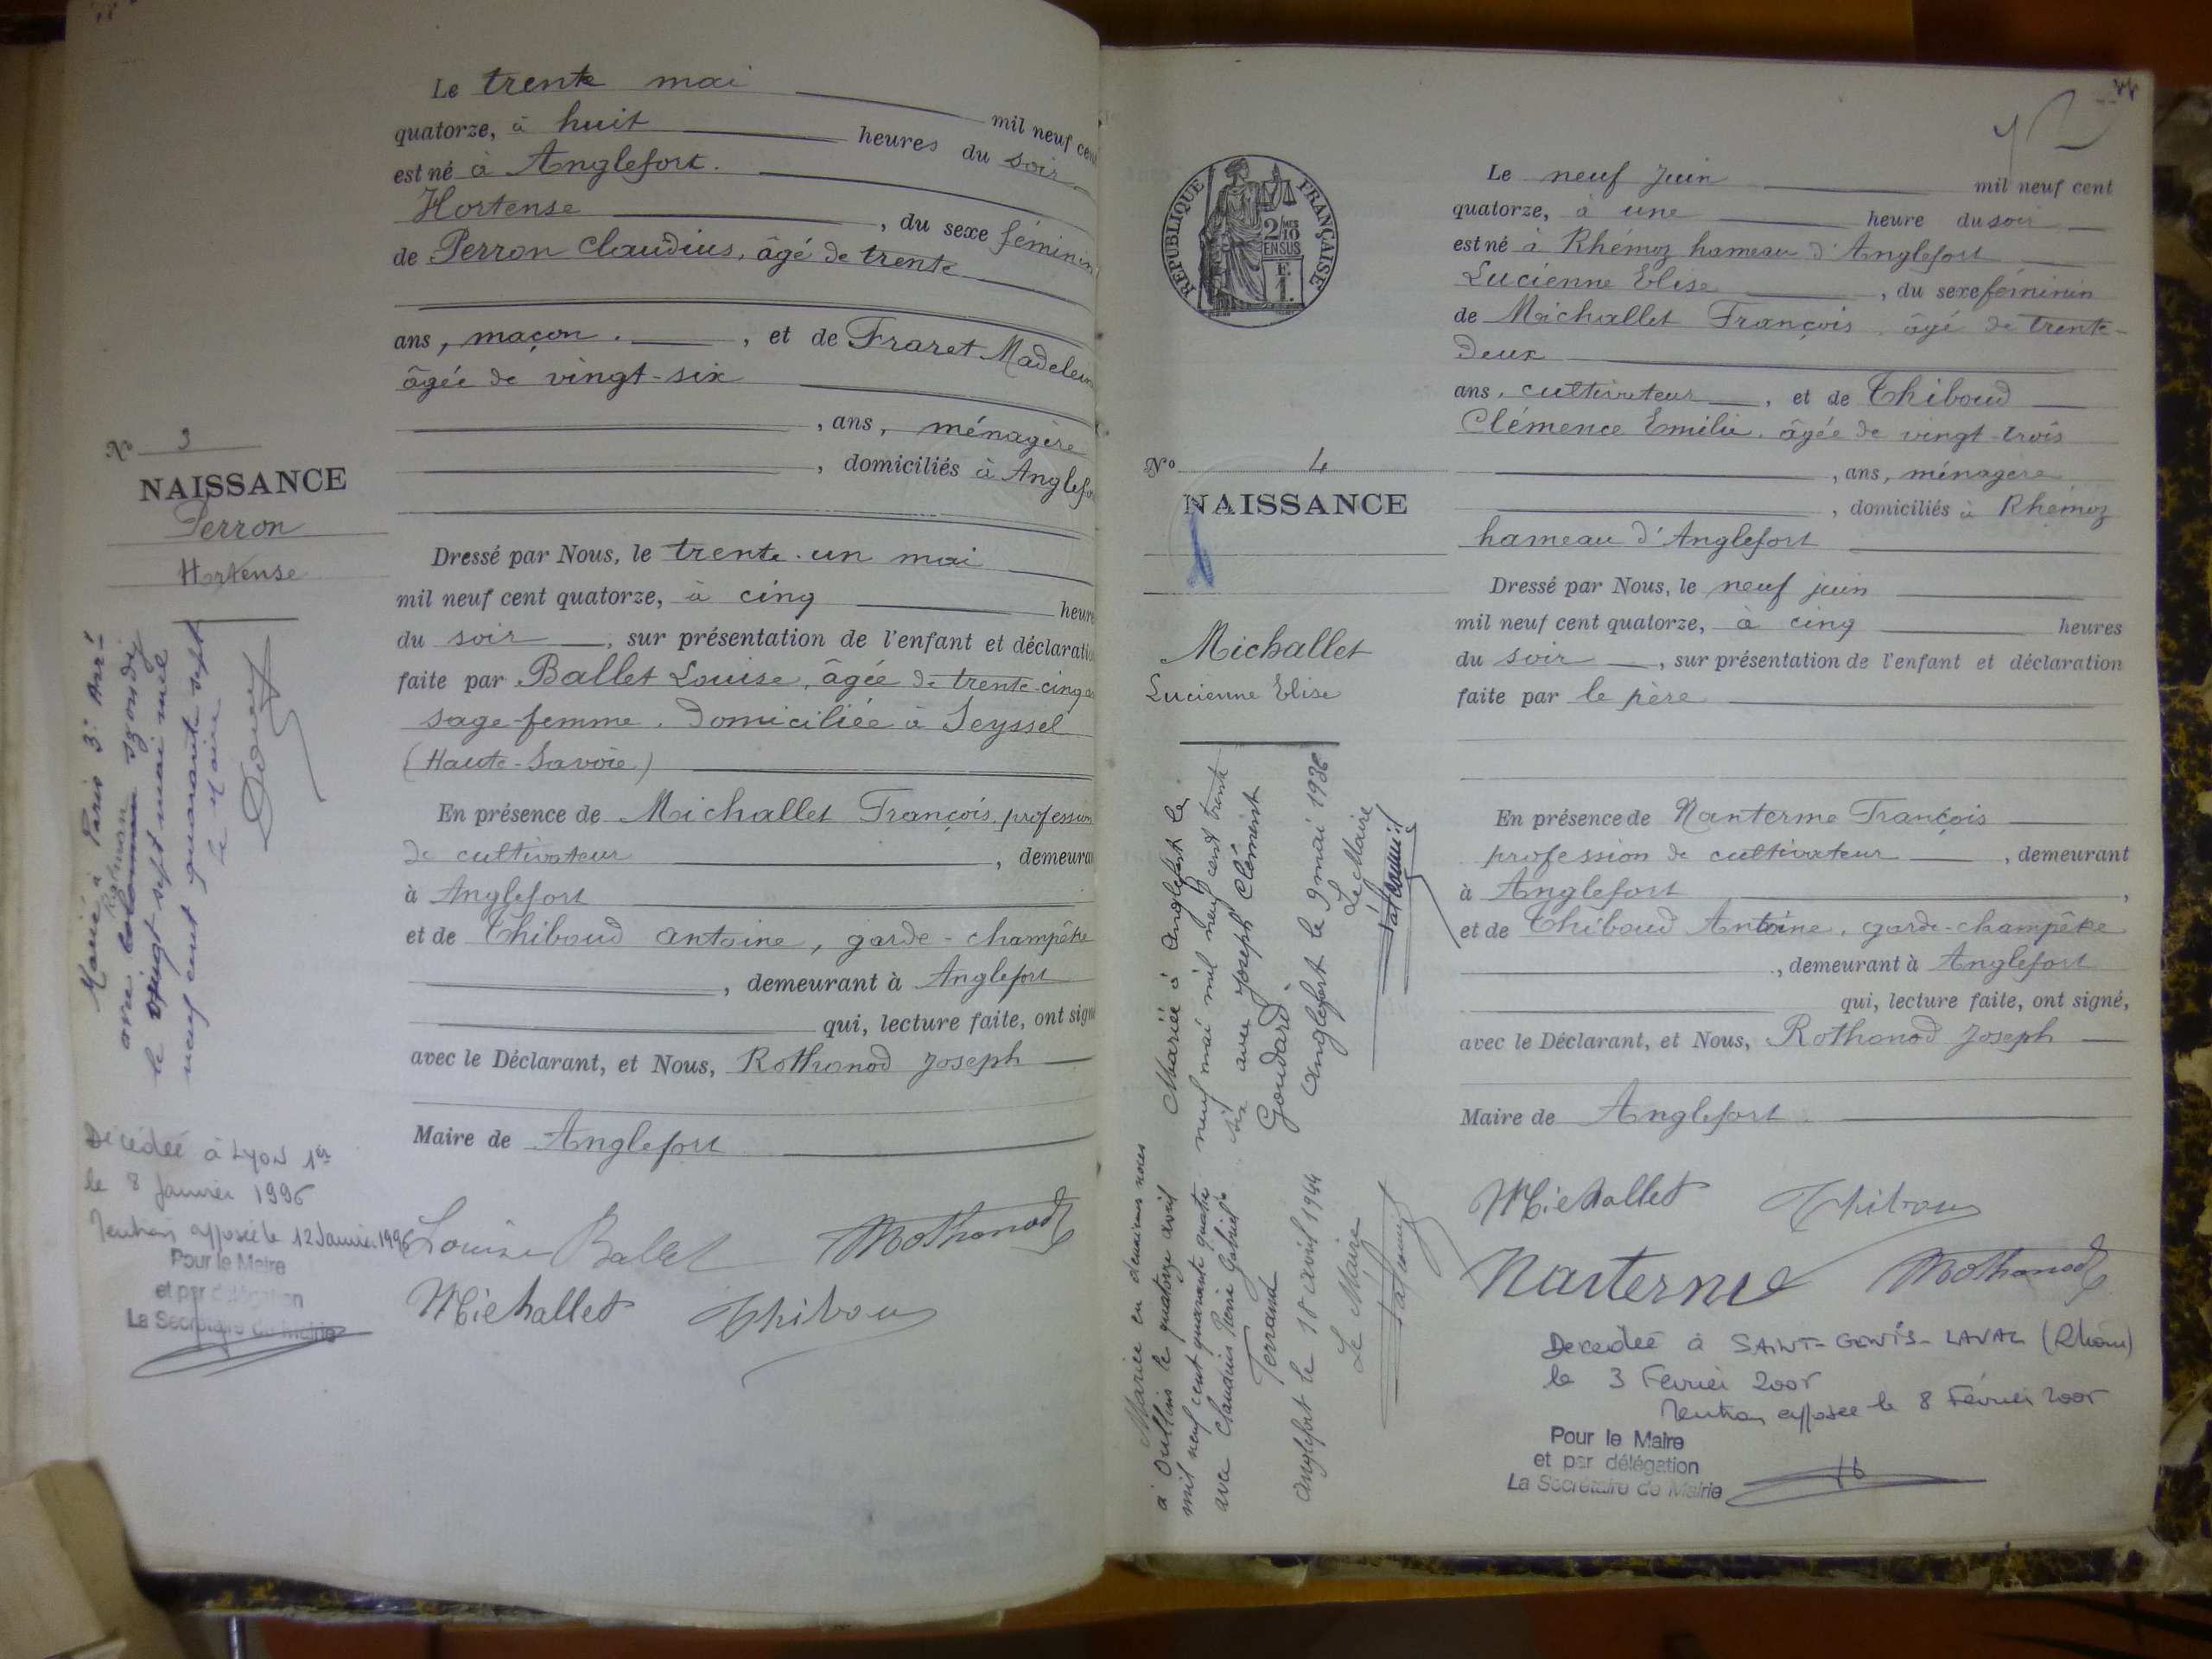 Le trente mai mil neuf cent
quatorze, à huit heures du soir
est né à Anglefort.
Hortense, du sexe féminin
de Perron Claudius, âgé de trente
ans, maçon., et de Fraret Madeleine
âgée de vingt-six
, ans, ménagère
, domiciliés à Anglefort
No 3
NAISSANCE
Perron
Hortense
Dressé par Nous, le trente-un mai
mil neuf cent quatorze, à cinq heures
du soir, sur présentation de l'enfant et déclaration
faite par Ballet Louise, âgée de trente-cinq ans
sage-femme, domiciliée à Seyssel
(Haute-Savoie)
En présence de Michallet François, profession
de cultivateur, demeurant
à Anglefort
et de Thiboud Antoine, garde-champêtre
, demeurant à Anglefort
qui, lecture faite, ont signé
avec le Déclarant, et Nous, Rothonod Joseph
Maire de Anglefort
Louise Ballet Rothonod
Michallet Thiboud
Mariée à Paris 3e Arr.t
avec Szondy
le vingt sept mai mil
neuf cent quarante sept
le Maire
Décédée à LYON 1er
le 8 Janvier 1996
Mention apposée le 12 Janvier 1996
Pour le Maire
et par délégation
La Secrétaire de Mairie
REPUBLIQUE FRANÇAISE
2/10 MES
EN SUS
F.
1.
Le neuf Juin mil neuf cent
quatorze, à une heure du soir
est né à Rhémoz hameau d'Anglefort
Lucienne Elise, du sexe féminin
de Michallet François, âgé de trente-
deux
ans, cultivateur, et de Thiboud
Clémence Emilie, âgée de vingt-trois
, ans, ménagère
, domiciliés à Rhémoz
hameau d'Anglefort
No 4
NAISSANCE
Michallet
Lucienne Elise
Dressé par Nous, le neuf juin
mil neuf cent quatorze, à cinq heures
du soir, sur présentation de l'enfant et déclaration
faite par le père
En présence de Nanterme François
profession de cultivateur, demeurant
à Anglefort,
et de Thiboud Antoine, garde-champêtre
, demeurant à Anglefort
qui, lecture faite, ont signé,
avec le Déclarant, et Nous, Rothonod Joseph
Maire de Anglefort
Michallet Thiboud
Nanterme Rothonod
Mariée à Anglefort le
neuf mai mil neuf cent trente
six avec Joseph Clément
Goudard
Anglefort le 9 mai 1936
Le Maire
Mariée en deuxièmes noces
à Oullins le quatorze avril
mil neuf cent quarante quatre
avec Claudius Pierre Gabriel
Ferrand
Anglefort le 18 avril 1944
Le Maire
Décédée à SAINT-GENIS-LAVAL (Rhône)
le 3 Février 2005
Mention apposée le 8 Février 2005
Pour le Maire
et par délégation
La Secrétaire de Mairie